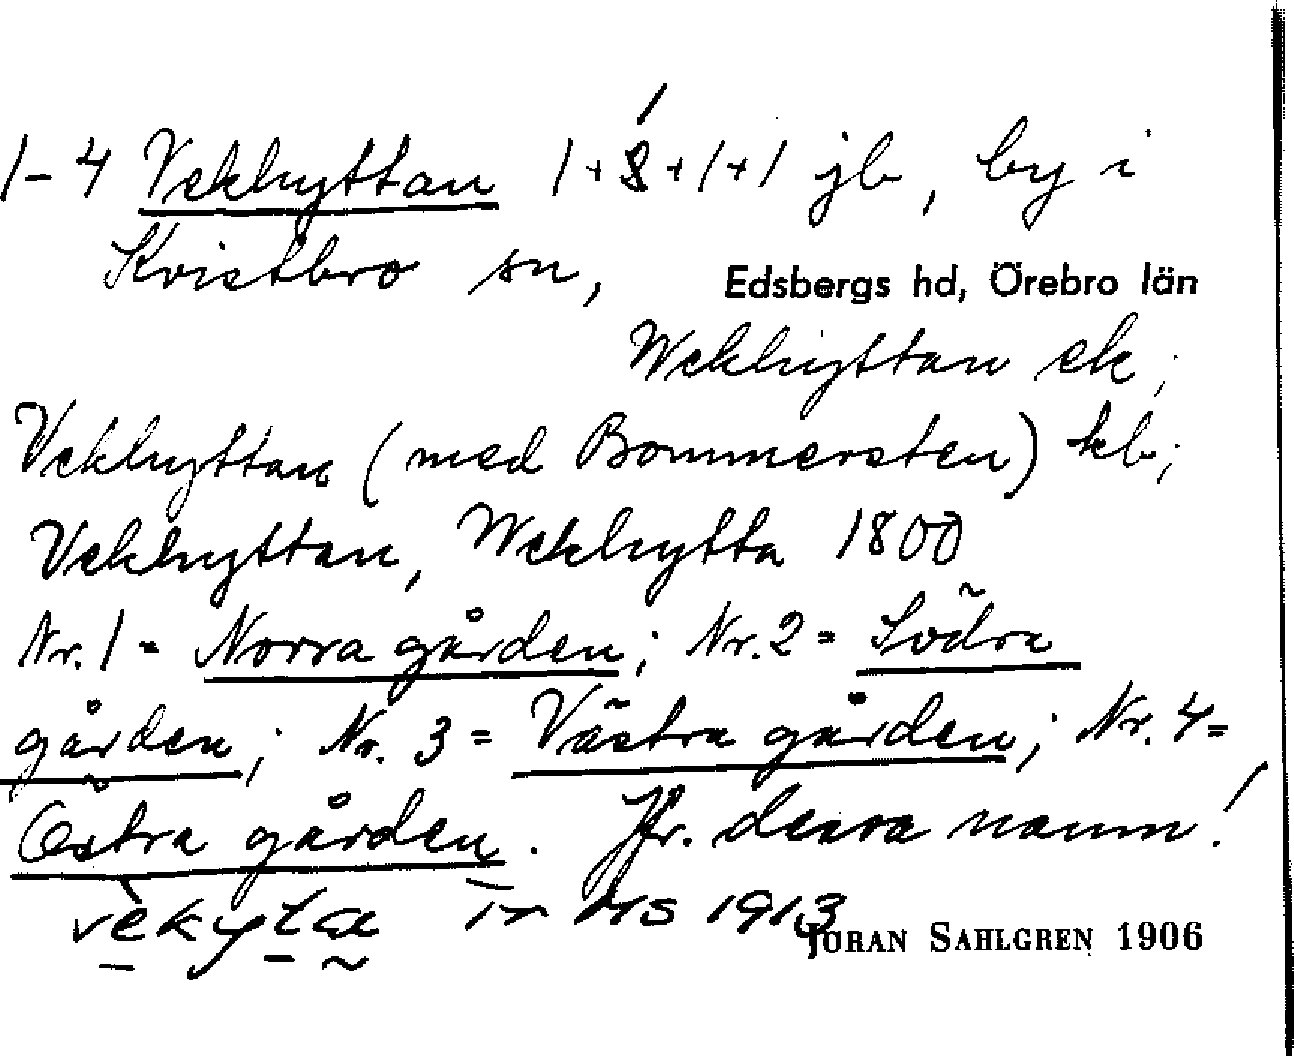 1-4 Vekhyttan 1+8+1+1 jb, by i
Kvistbro sn, Edsbergs hd, Örebro län
Wekhyttan ek;
Vekhyttan (med Bommersten) kb;
Vekhyttan, Wekhytta 1800
Nr. 1 = Norra gården; Nr. 2 = Södra
gården; Nr. 3 = Västra gården; Nr. 4 =
Östra gården. Jfr. dessa namn!
1913
JÖRAN SAHLGREN 1906